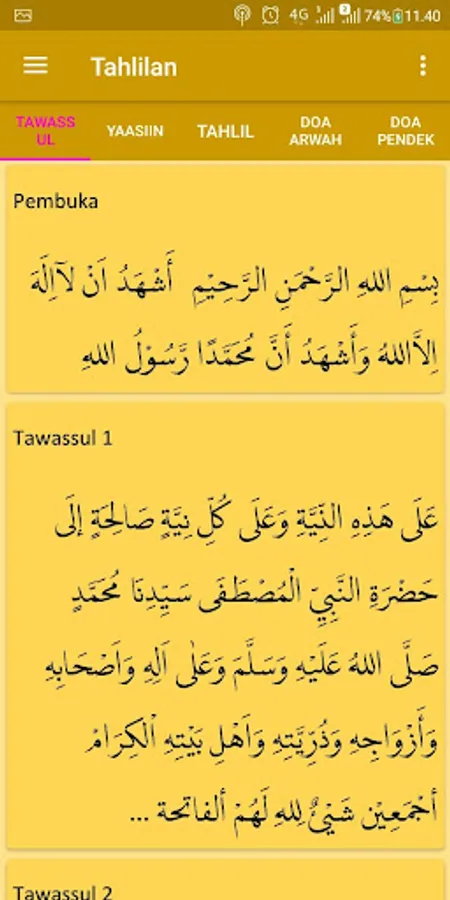 4G 2 74% 11.40
Tahlilan
TAWASS
UL
YAASIIN
TAHLIL
DOA
ARWAH
DOA
PENDEK
Pembuka
بِسْمِ اللهِ الرَّحْمَنِ الرَّحِيْمِ أَشْهَدُ اَنْ لآاِلَهَ
اِلاَّاللهُ وَأَشْهَدُ أَنَّ مُحَمَّدًا رَّسُوْلُ اللهِ
Tawassul 1
عَلَى هَذِهِ النِّيَّةِ وَعَلَى كُلِّ نِيَّةٍ صَالِحَةٍ إلَى
حَضْرَةِ النَّبِيِّ الْمُصْطَفَى سَيِّدِنَا مُحَمَّدٍ
صَلَّى اللهُ عَلَيْهِ وَسَلَّمَ وَعَلٰى اَلِهِ وَاَصْحَابِهِ
وَأَزْوَاجِهِ وَذُرِّيَّتِهِ وَاَهْلِ بَيْتِهِ اْلكِرَامْ
أجْمَعِيْن شَيْئٌ لِلهِ لَهُمْ ألفاتحة ...
Tawassul 2